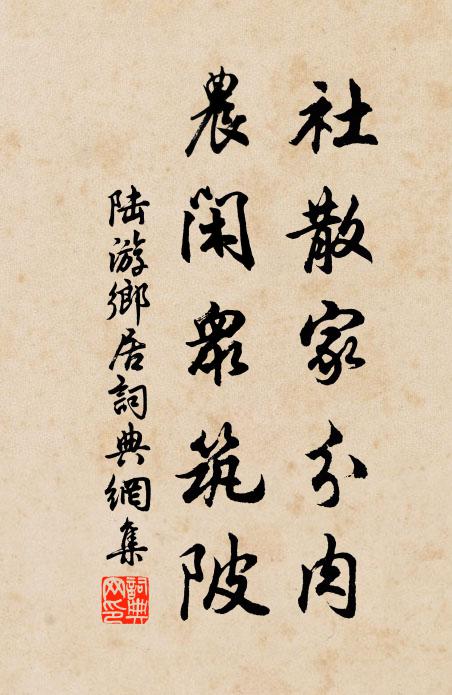 社散家分肉
農閑衆筑陂
陆游鄉居詞典網集
詞典网印